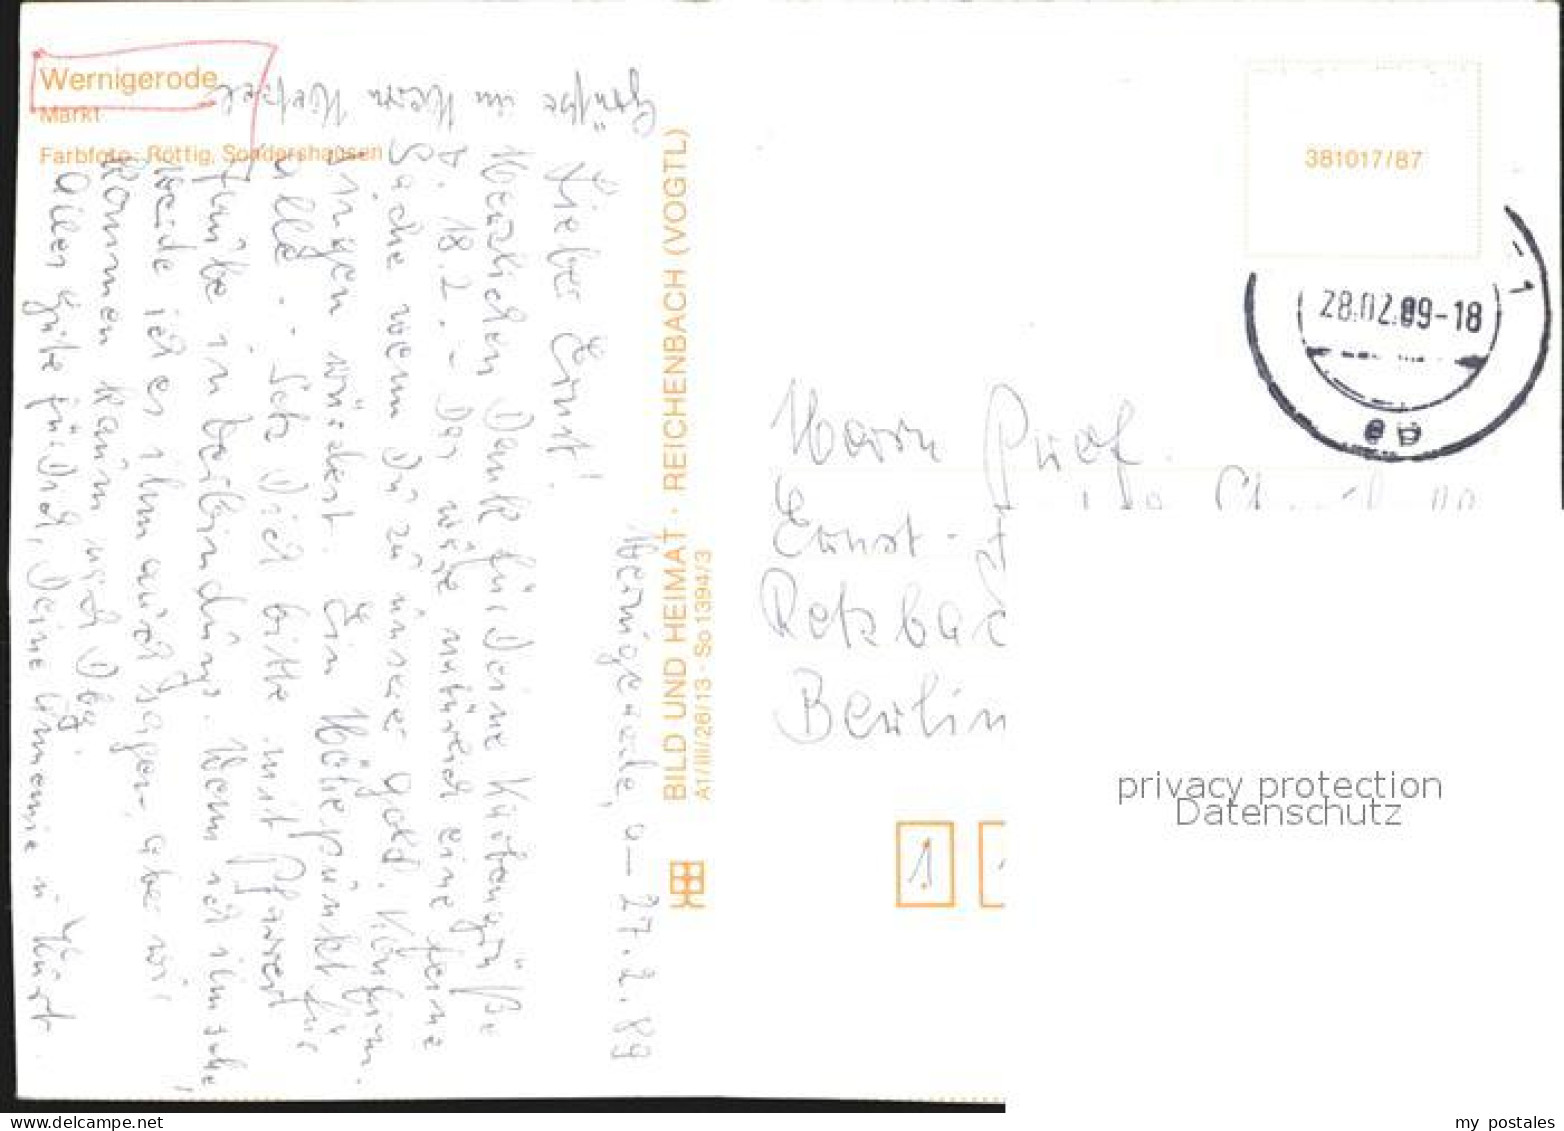 Wernigerode
Markt
Farbfoto: Röttig, Sondershausen
Grüße an Herrn
Wernigerode, 27.2.89
Lieber Ernst!
Herzlichen Dank für Deine Kartengrüße
v. 18.2. – Das wäre natürlich eine feine
Sache wenn Du zu unserer gold. Konfirm.
singen würdest. Ein Höhepunkt für
alle. - Setz Dich bitte mit Pfarrer
Funke in Verbindung. Wenn ich ihn sehe,
werde ich es ihm auch sagen, aber wir
kommen kaum nach
Alles Gute für Dich, Deine Annemie u. Kurt.
BILD UND HEIMAT · REICHENBACH (VOGTL)
A1/III/26/13 · So 1394/3
381017/87
28.02.89-18
Herrn Prof.
Ernst-
Berlin
1
privacy protection
Datenschutz
www.delcampe.net
my_postales